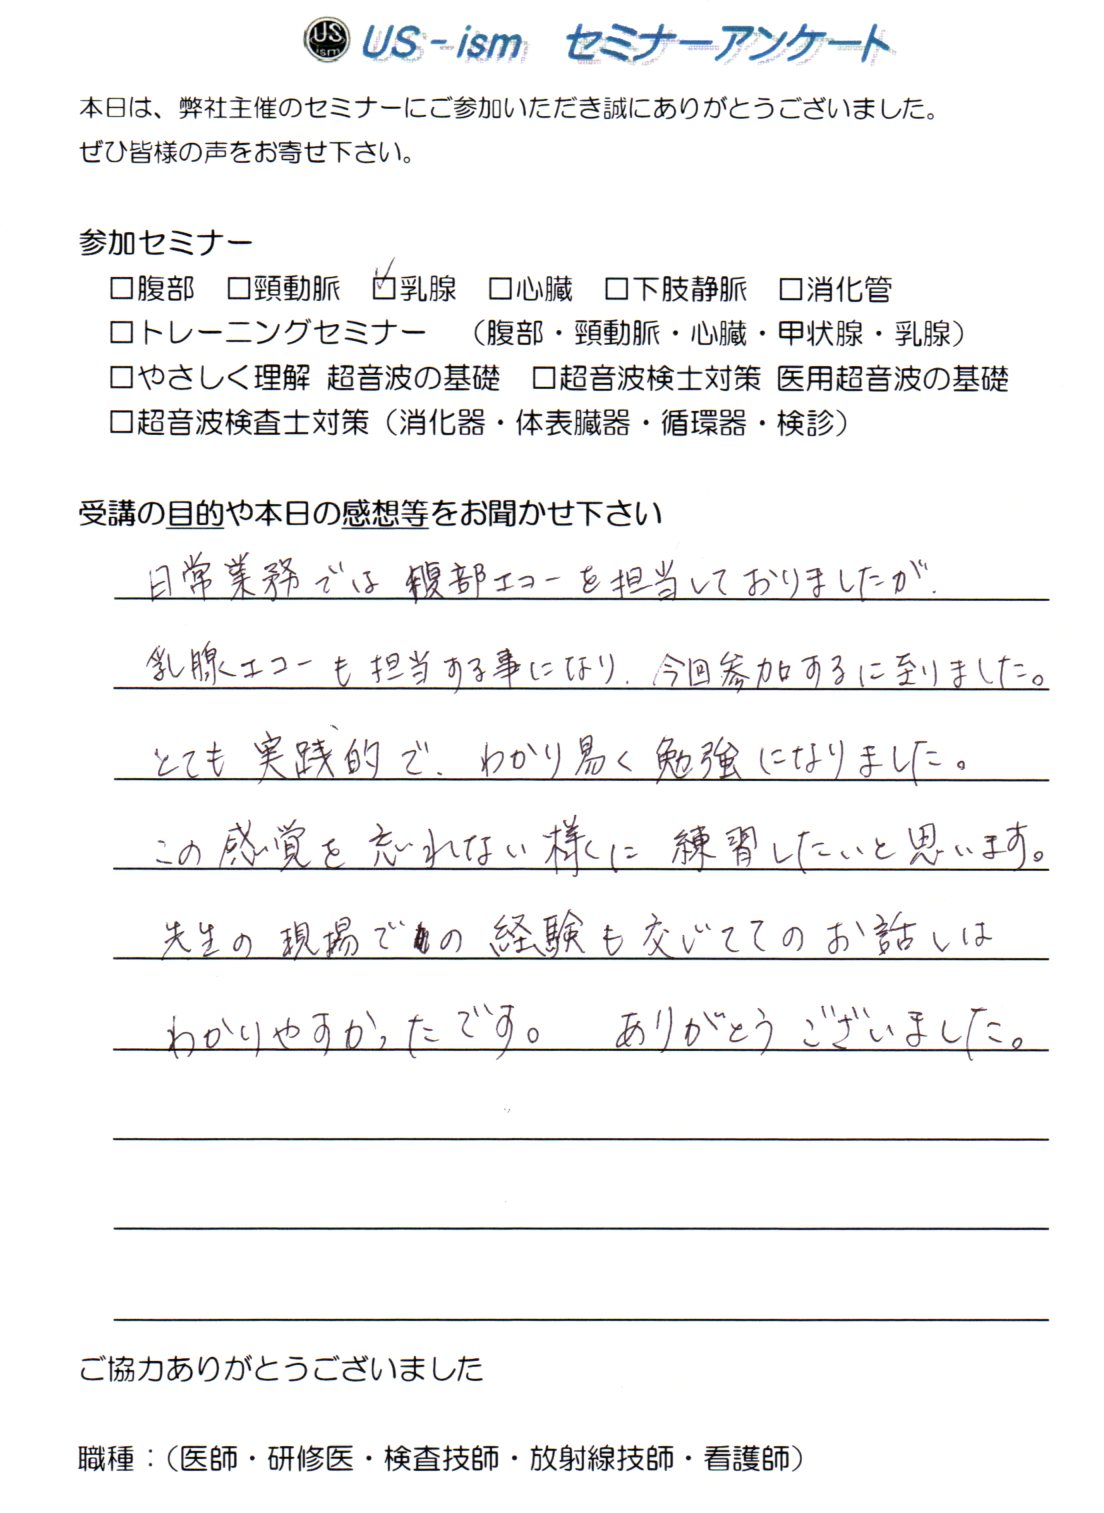 US ism US-ism セミナーアンケート
本日は、弊社主催のセミナーにご参加いただき誠にありがとうございました。
ぜひ皆様の声をお寄せ下さい。
参加セミナー
□腹部 □頸動脈 ☑乳腺 □心臓 □下肢静脈 □消化管
□トレーニングセミナー （腹部・頸動脈・心臓・甲状腺・乳腺）
□やさしく理解 超音波の基礎 □超音波検士対策 医用超音波の基礎
□超音波検査士対策（消化器・体表臓器・循環器・検診）
受講の目的や本日の感想等をお聞かせ下さい
日常業務では 腹部エコーを担当しておりましたが、
乳腺エコーも担当する事になり、今回参加するに至りました。
とても実践的で、わかり易く勉強になりました。
この感覚を忘れない様に 練習したいと思います。
先生の現場での経験も交じててのお話しは
わかりやすかったです。 ありがとうございました。
ご協力ありがとうございました
職種：（医師・研修医・検査技師・放射線技師・看護師）